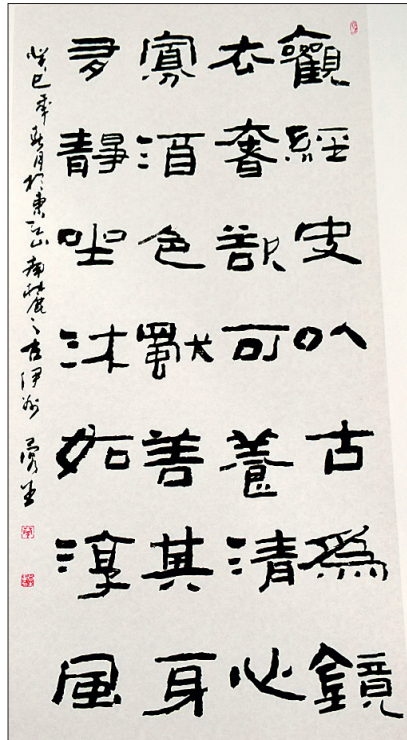 觀經史以古爲鏡
去奢欲可養清心
寡酒色獨善其身
多靜坐沐如淳風
癸巳年秋月於東山南麓之古伊州